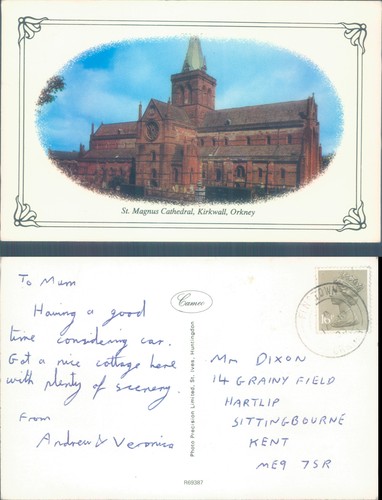 St. Magnus Cathedral, Kirkwall, Orkney
To Mum
Having a good
time considering car.
Got a nice cottage here
with plenty of scenery.
From
Andrew & Veronica
Cameo
Photo Precision Limited, St. Ives, Huntingdon
R69387
Mrs DIXON
14 GRAINY FIELD
HARTLIP
SITTINGBOURNE
KENT
ME9 7SR